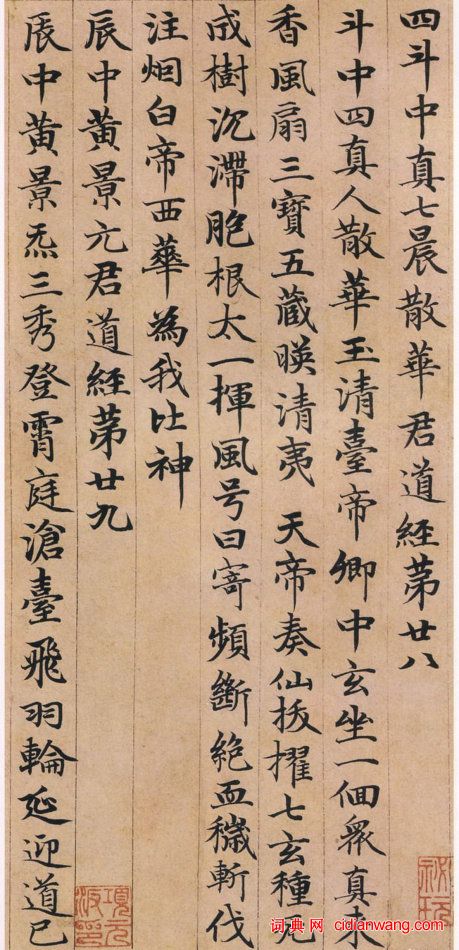 四斗中真七晨散華君道經苐廿八
斗中四真人散華玉清臺帝卿中玄坐一佪衆真來
香風扇三寶五藏暎清夷天帝奏仙挍擢七玄種
成樹沉滯胞根太一揮風号曰寄頻斷絶血穢斬伐
注烟白帝西華為我比神
辰中黄景元君道經苐廿九
辰中黄景炁三秀登霄庭滄臺飛羽輪延迎道已
词典网 cidianwang.com